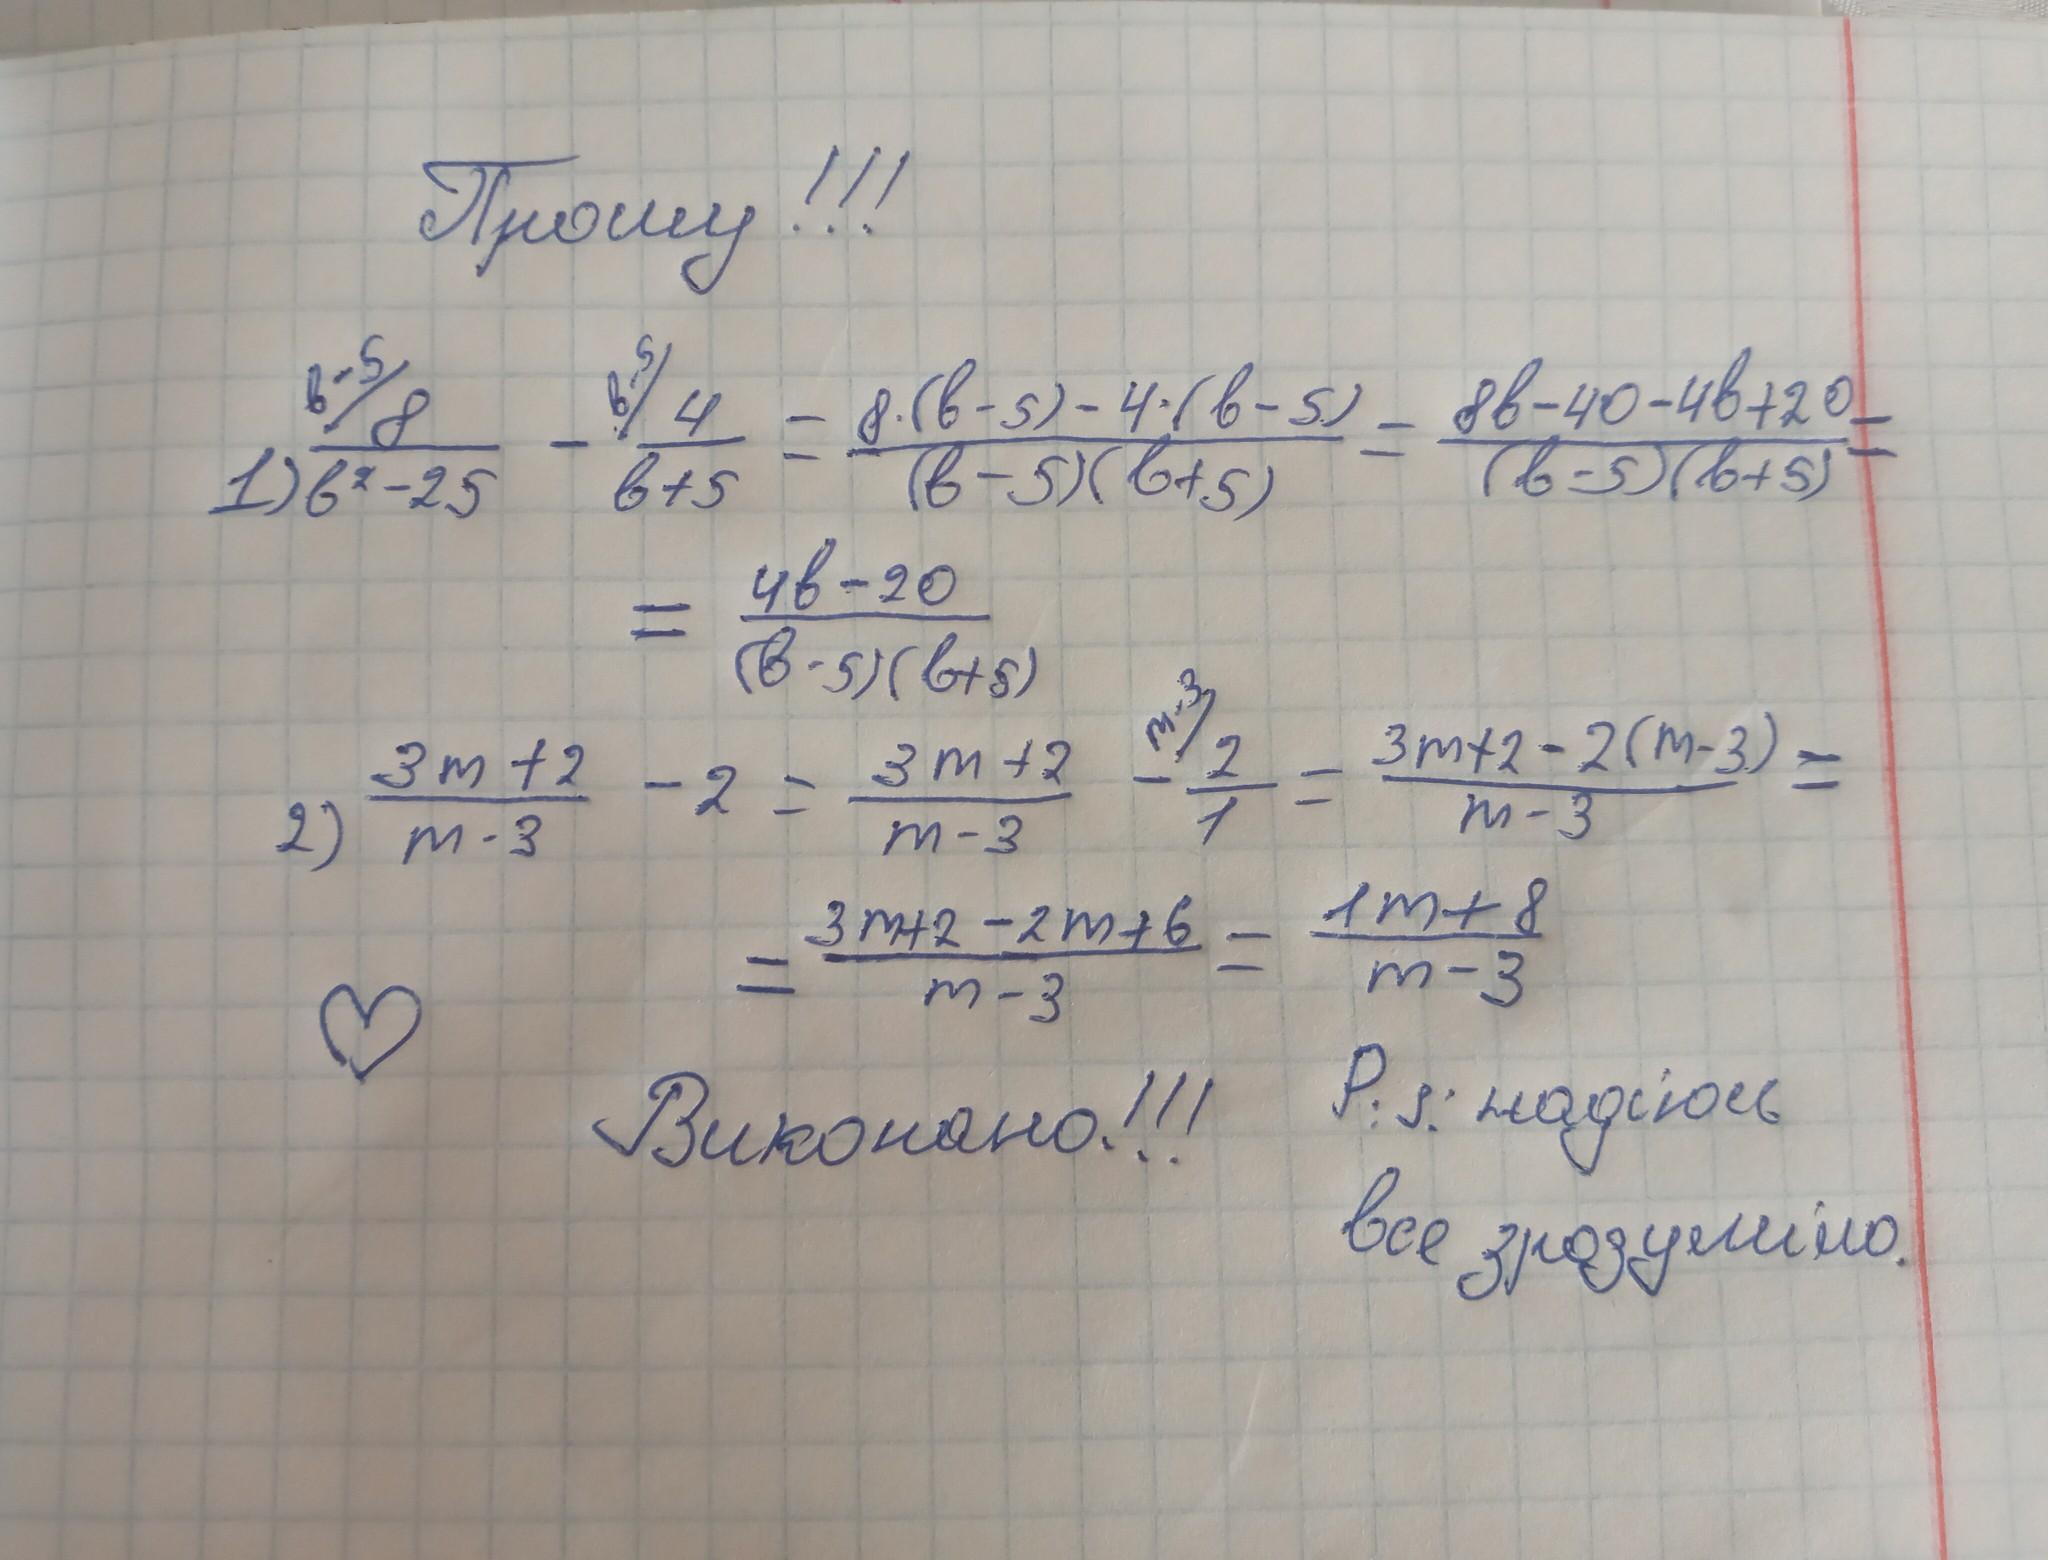 Прошу!!!
1) b-5/ 8/(b²-25) - b-5/ 4/(b+5) = (8·(b-5)-4·(b-5))/((b-5)(b+5)) = (8b-40-4b+20)/((b-5)(b+5)) =
= (4b-20)/((b-5)(b+5))
2) (3m+2)/(m-3) - 2 = (3m+2)/(m-3) - m-3/ 2/1 = (3m+2-2(m-3))/(m-3) =
= (3m+2-2m+6)/(m-3) = (1m+8)/(m-3)
Виконано!!!
P.s: надіюсь
все зрозуміло.